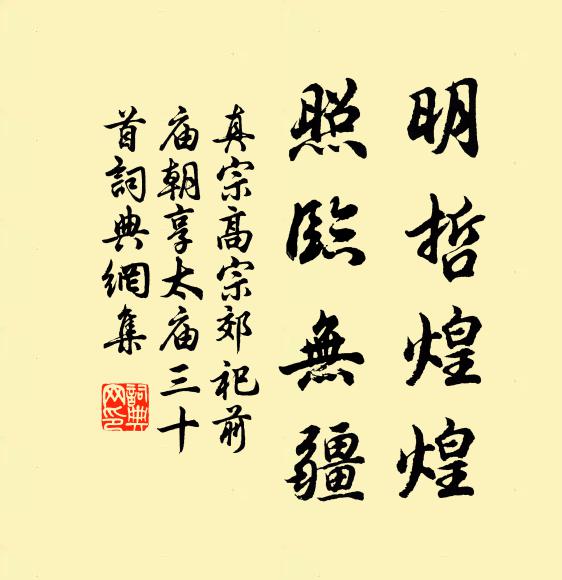 明哲煌煌
照臨無疆
真宗高宗郊祀前
庙朝享太庙三十
首詞典網集
詞典
网印